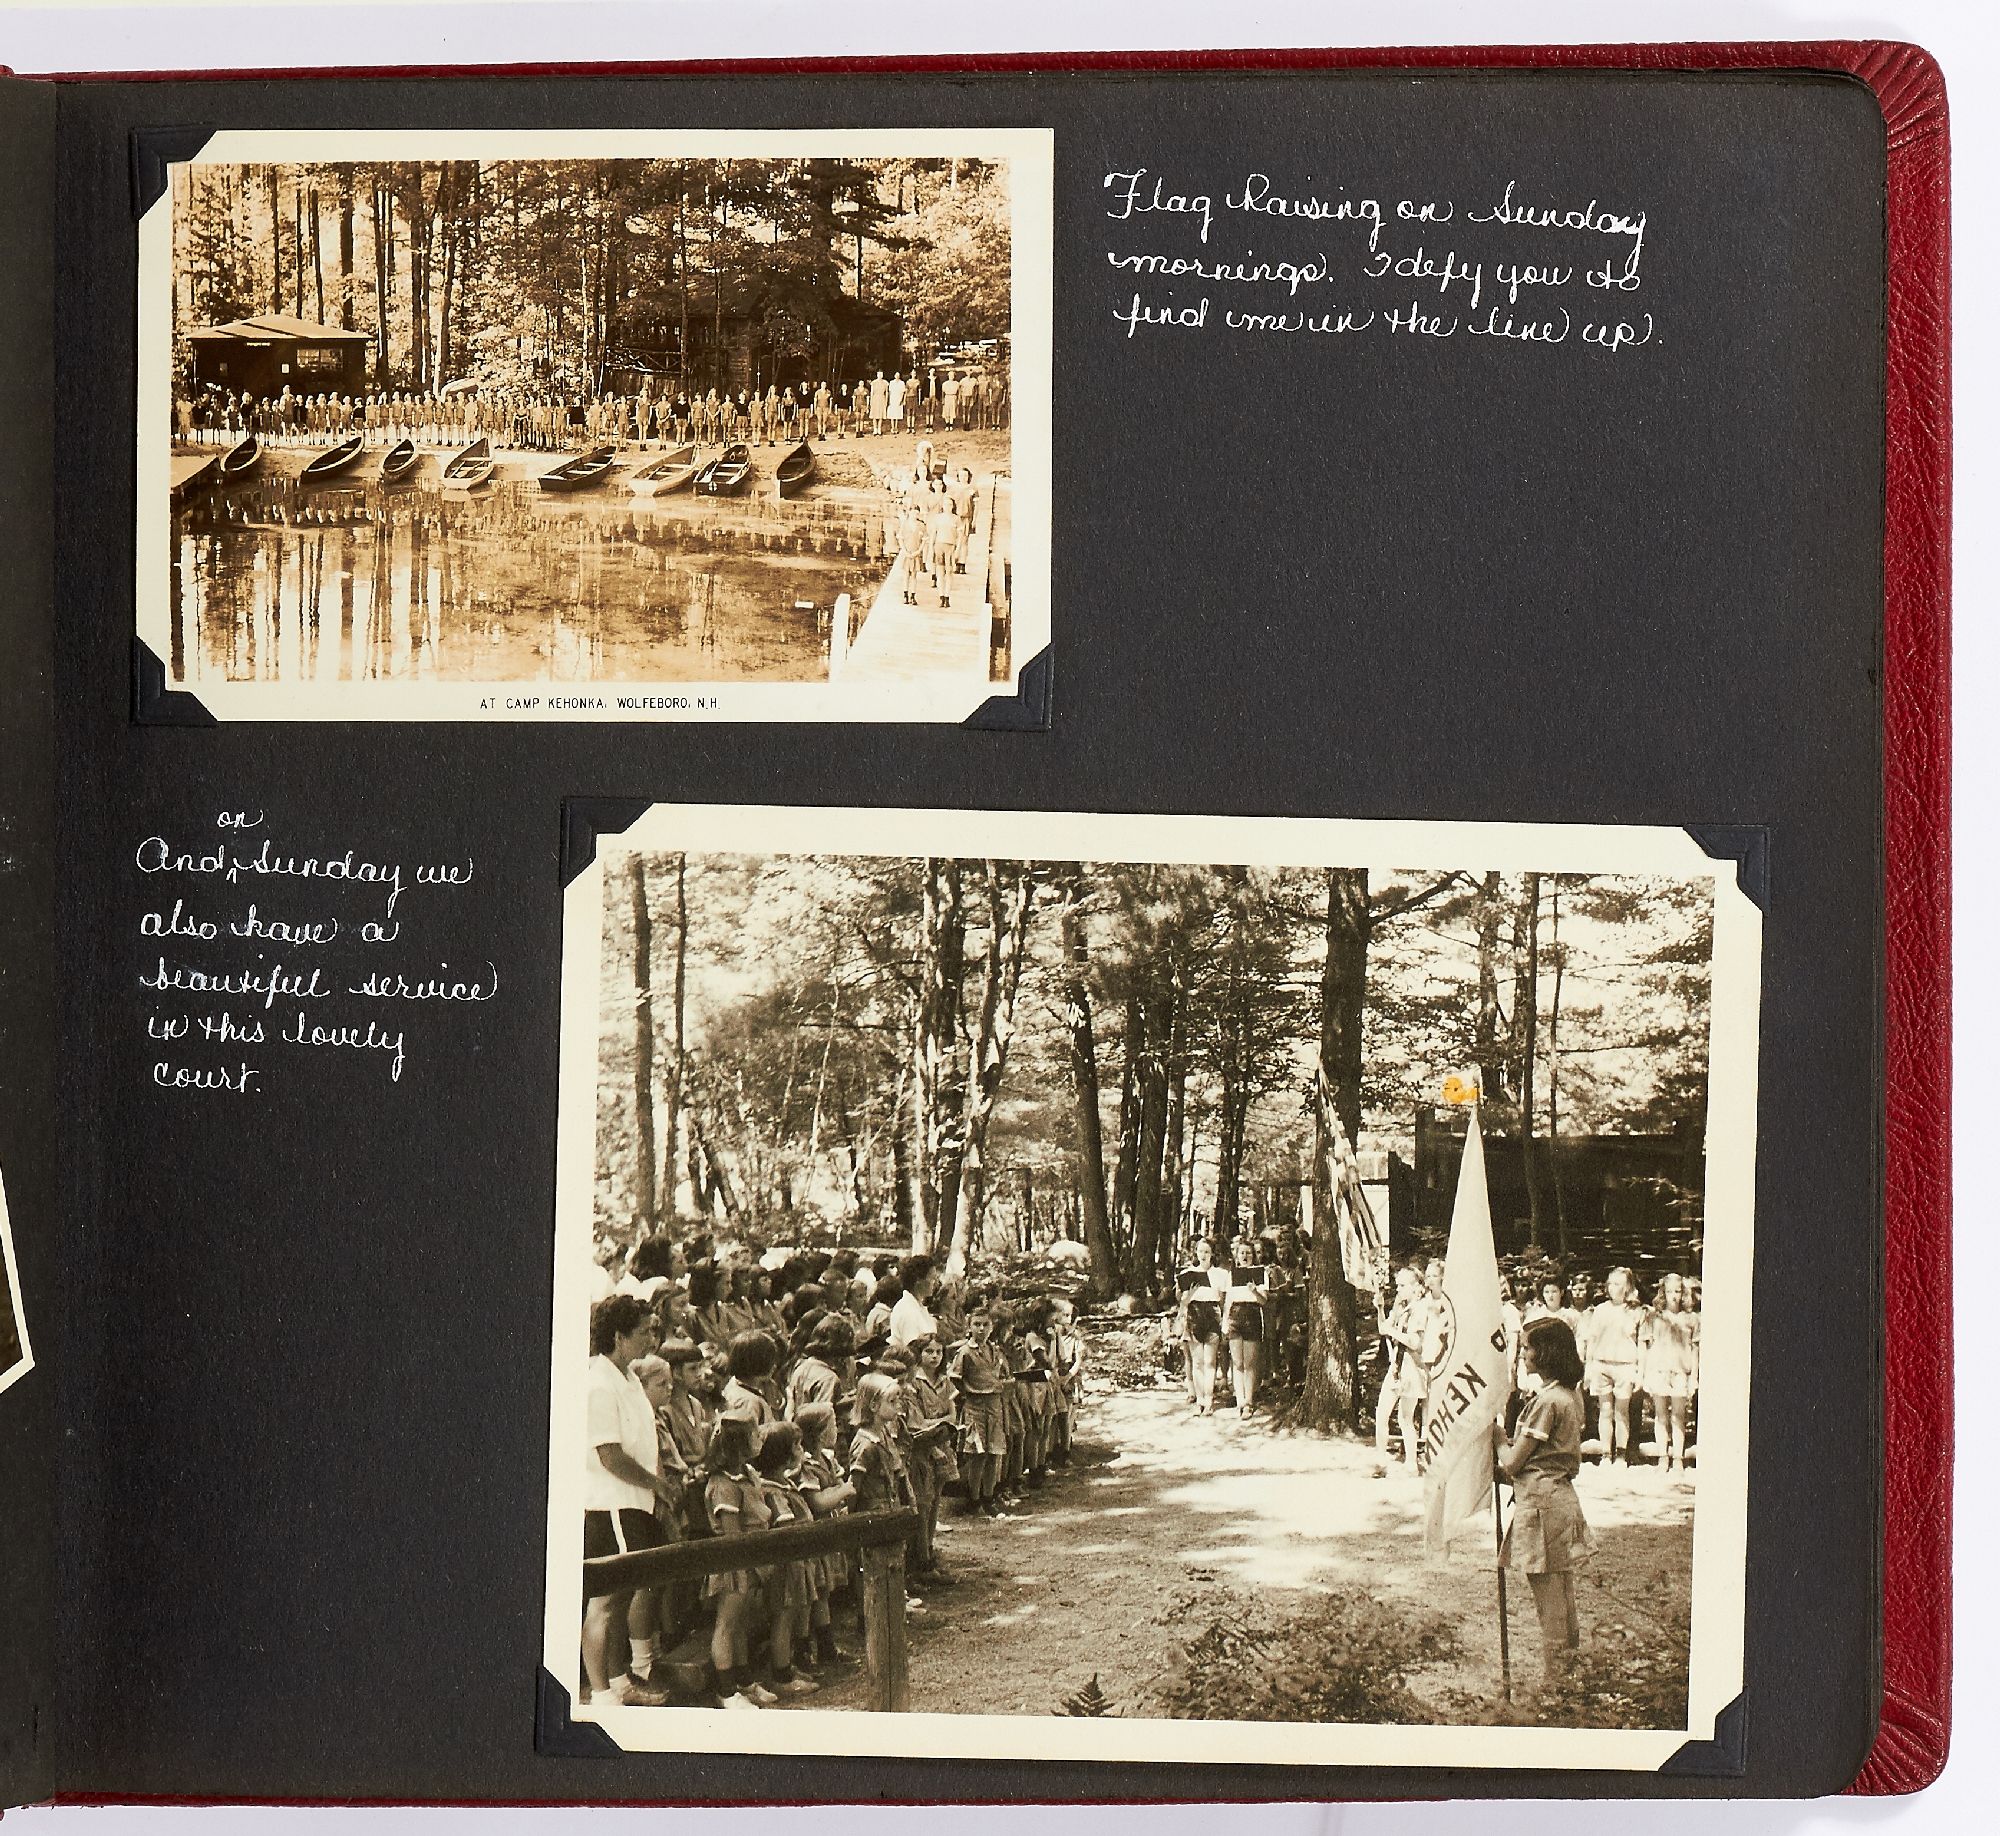 Flag Raising on Sunday
mornings. I defy you to
find me in the line up.
AT CAMP KEHONKA, WOLFEBORO, N.H.
on
And ^ Sunday we
also have a
beautiful service
in this lovely
court.
P
KEHON